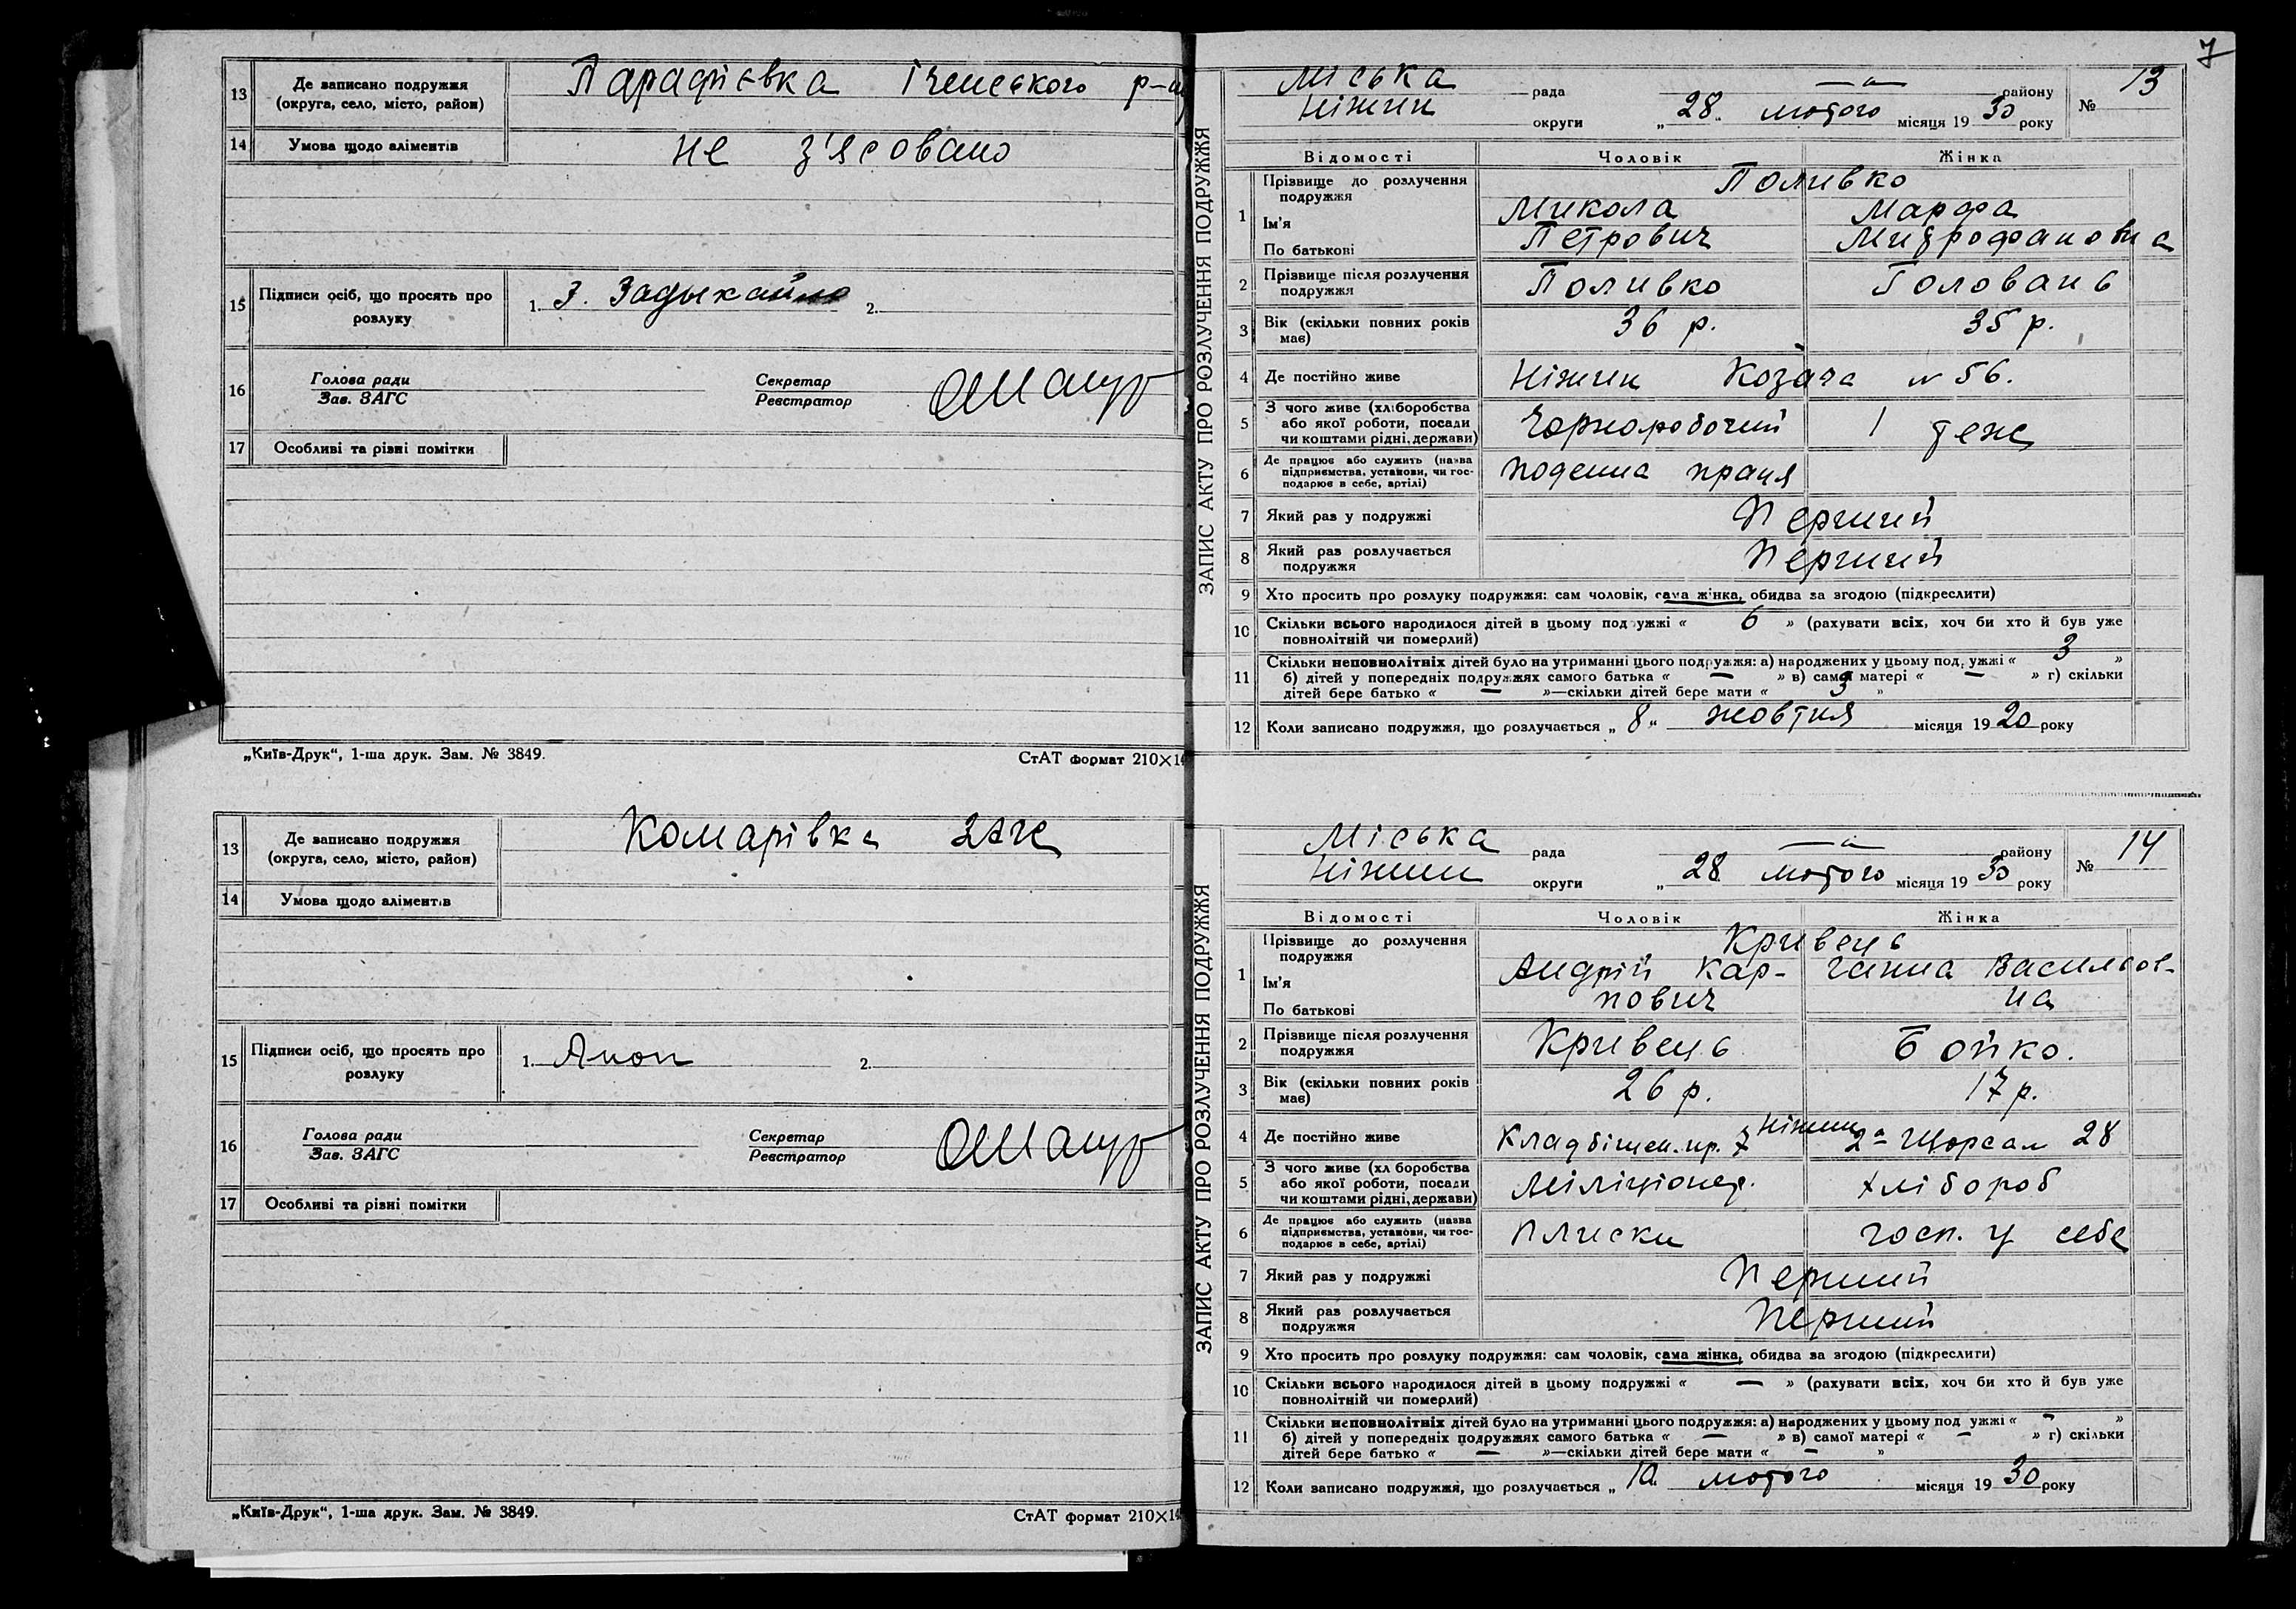 13 Де записано подружжя (округа, село, місто, район) Парафієвка Іченського р-ну
14 Умова щодо аліментів не з'ясовано
15 Підписи осіб, що просять про розлуку 1. З. Задыкайло 2.
16 Голова ради
Зав. ЗАГС
Секретар
Реєстратор
17 Особливі та рівні помітки
„Київ-Друк“, 1-ша друк. Зам. № 3849. СтАТ формат 210×14
13 Де записано подружжя (округа, село, місто, район) Комарівка
14 Умова щодо аліментів
15 Підписи осіб, що просять про розлуку 1. 2.
16 Голова ради
Зав. ЗАГС
Секретар
Реєстратор
17 Особливі та рівні помітки
„Київ-Друк“, 1-ша друк. Зам. № 3849. СтАТ формат 210×14
7
ЗАПИС АКТУ ПРО РОЗЛУЧЕННЯ ПОДРУЖЖЯ
Міська рада — району № 13
Ніжин округи „28“ лютого місяця 1930 року
Відомості Чоловік Жінка
1 Прізвище до розлучення подружжя Поливко
Ім'я Микола Марфа
По батькові Петрович Митрофановна
2 Прізвище після розлучення подружжя Поливко Головань
3 Вік (скільки повних років має) 36 р. 35 р.
4 Де постійно живе Ніжин Козача № 56.
5 З чого живе (хліборобства або якої роботи, посади чи коштами рідні, держави) Чорноробочий теж
6 Де працює або служить (назва підприємства, установи, чи господарює в себе, артілі) поденна праця
7 Який раз у подружжі Перший
8 Який раз розлучається подружжя Перший
9 Хто просить про розлуку подружжя: сам чоловік, сама жінка, обидва за згодою (підкреслити)
10 Скільки всього народилося дітей в цьому подружжі « 6 » (рахувати всіх, хоч би хто й був уже
повнолітній чи померлий)
11 Скільки неповнолітніх дітей було на утриманні цього подружжя: а) народжених у цьому подружжі « 3 »
б) дітей у попередніх подружжях самого батька « — » в) самої матері « — » г) скільки
дітей бере батько « — »—скільки дітей бере мати « 3 »
12 Коли записано подружжя, що розлучається „8“ жовтня місяця 1920 року
ЗАПИС АКТУ ПРО РОЗЛУЧЕННЯ ПОДРУЖЖЯ
Міська рада — району № 14
Ніжин округи „28“ лютого місяця 1930 року
Відомості Чоловік Жінка
1 Прізвище до розлучення подружжя Кривець
Ім'я Андрій Кар- Ганна Васильов-
По батькові пович на
2 Прізвище після розлучення подружжя Кривець Бойко.
3 Вік (скільки повних років має) 26 р. 17 р.
4 Де постійно живе Ніжин Кладбіщен. пр. 7 28
5 З чого живе (хліборобства або якої роботи, посади чи коштами рідні, держави) Міліціонер. хлібороб
6 Де працює або служить (назва підприємства, установи, чи господарює в себе, артілі) Плиски госп. у себе
7 Який раз у подружжі Перший
8 Який раз розлучається подружжя Перший
9 Хто просить про розлуку подружжя: сам чоловік, сама жінка, обидва за згодою (підкреслити)
10 Скільки всього народилося дітей в цьому подружжі « — » (рахувати всіх, хоч би хто й був уже
повнолітній чи померлий)
11 Скільки неповнолітніх дітей було на утриманні цього подружжя: а) народжених у цьому подружжі « — »
б) дітей у попередніх подружжях самого батька « — » в) самої матері « — » г) скільки
дітей бере батько « — »—скільки дітей бере мати « — »
12 Коли записано подружжя, що розлучається „ лютого місяця 1930 року